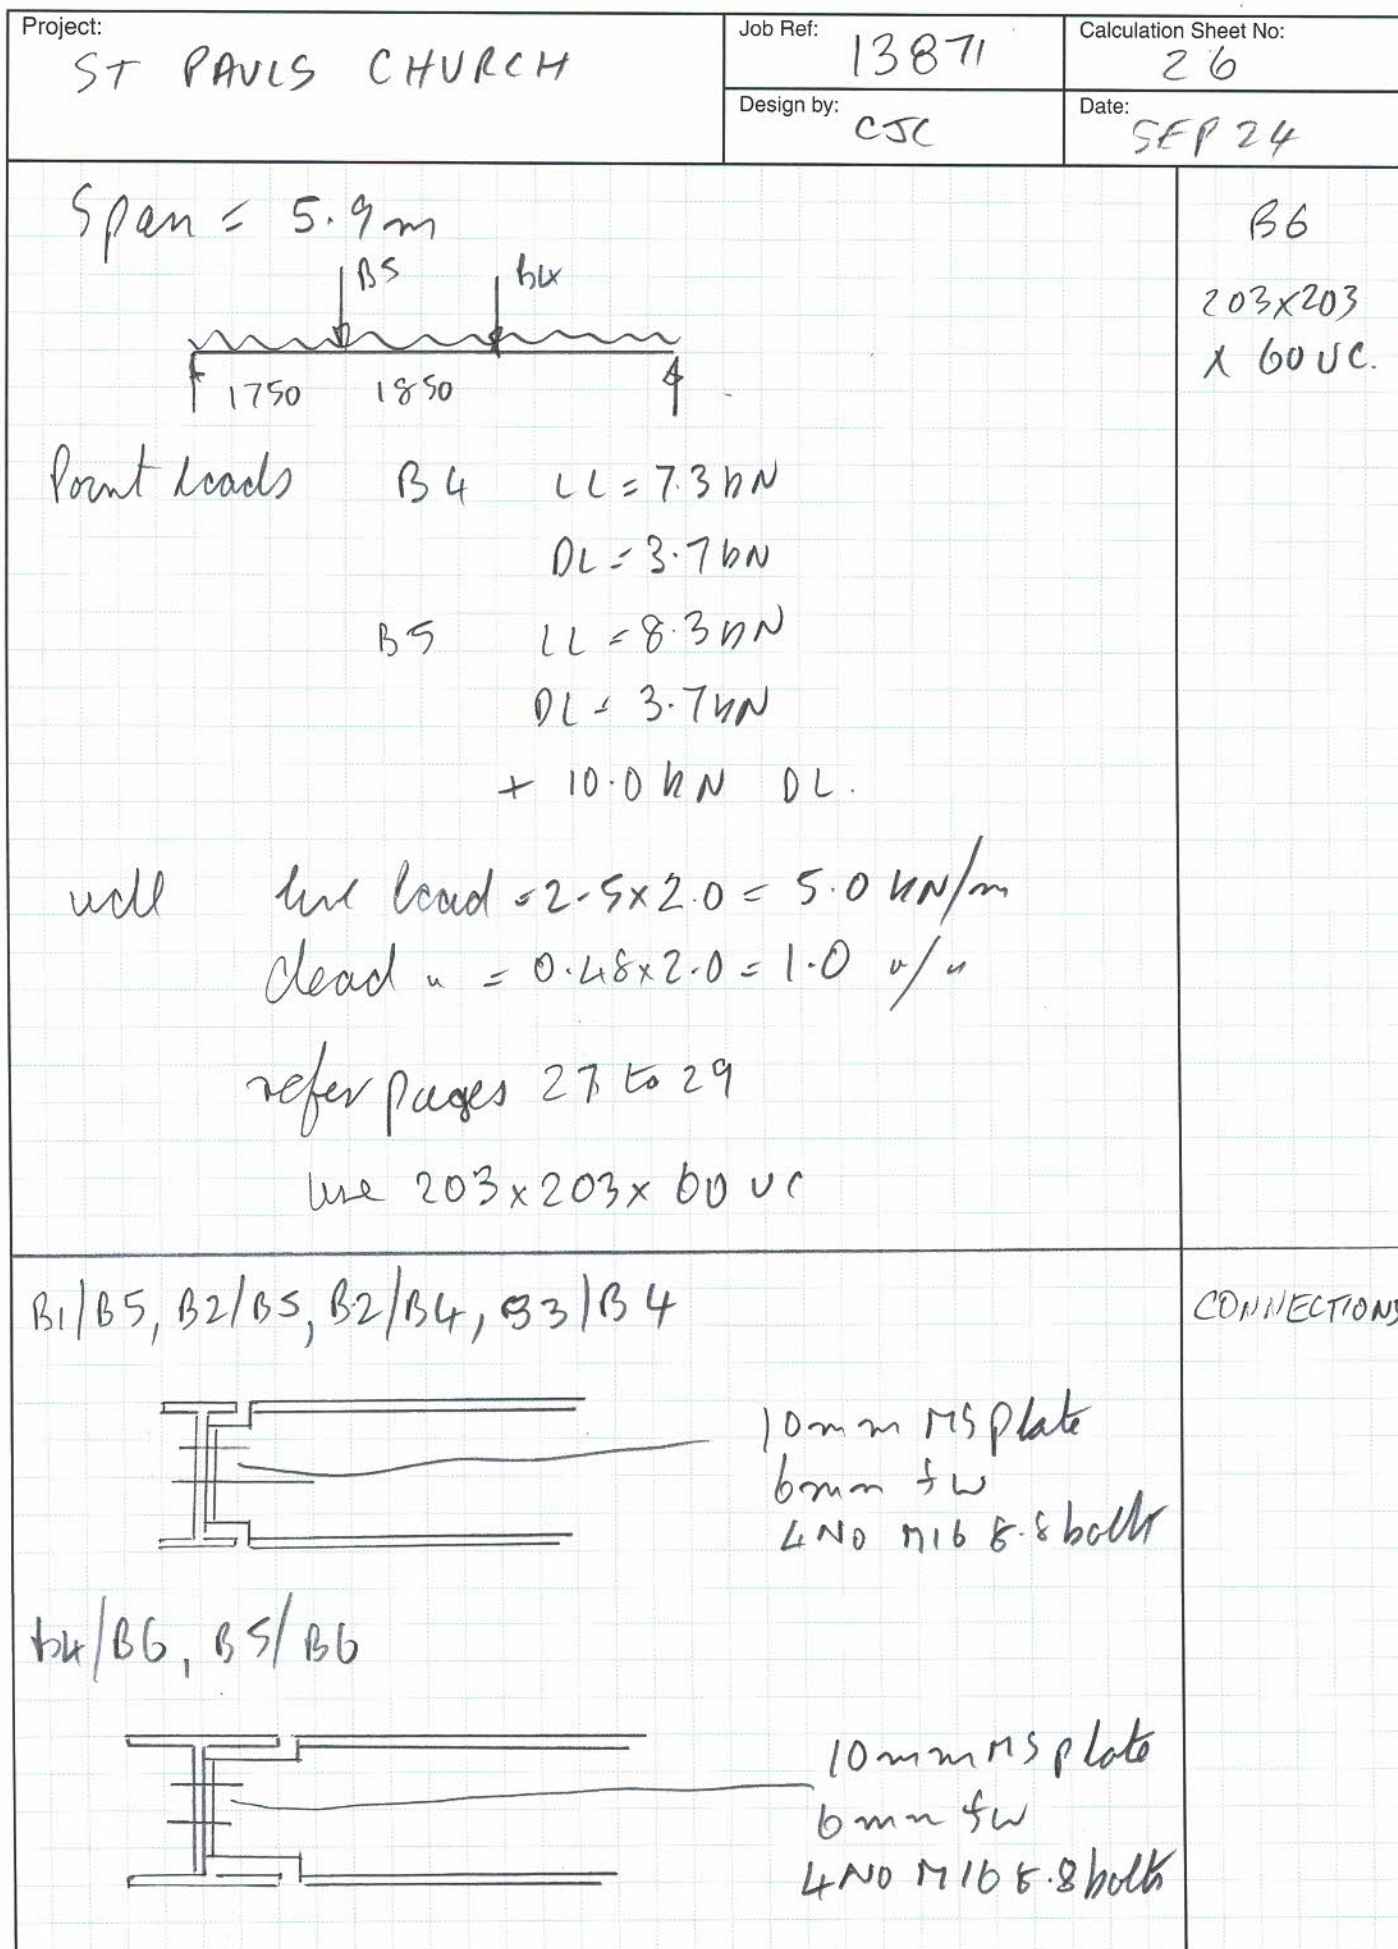 Project:
ST PAULS CHURCH
Job Ref:
13871
Calculation Sheet No:
26
Design by:
CJC
Date:
SEP 24
Span = 5.9m
B6
203x203
x 60 UC.
B5
B4
1750 1850
Point loads B4 LL = 7.3 kN
DL = 3.7 kN
B5 LL = 8.3 kN
DL = 3.7 kN
+ 10.0 kN DL.
udl live load = 2.5 x 2.0 = 5.0 kN/m
dead " = 0.48 x 2.0 = 1.0 "/"
refer pages 27 to 29
use 203 x 203 x 60 UC
B1/B5, B2/B5, B2/B4, B3/B4
CONNECTIONS
10mm MS plate
6mm fw
4 NO M16 8.8 bolts
B4/B6, B5/B6
10mm MS plate
6mm fw
4 NO M16 8.8 bolts